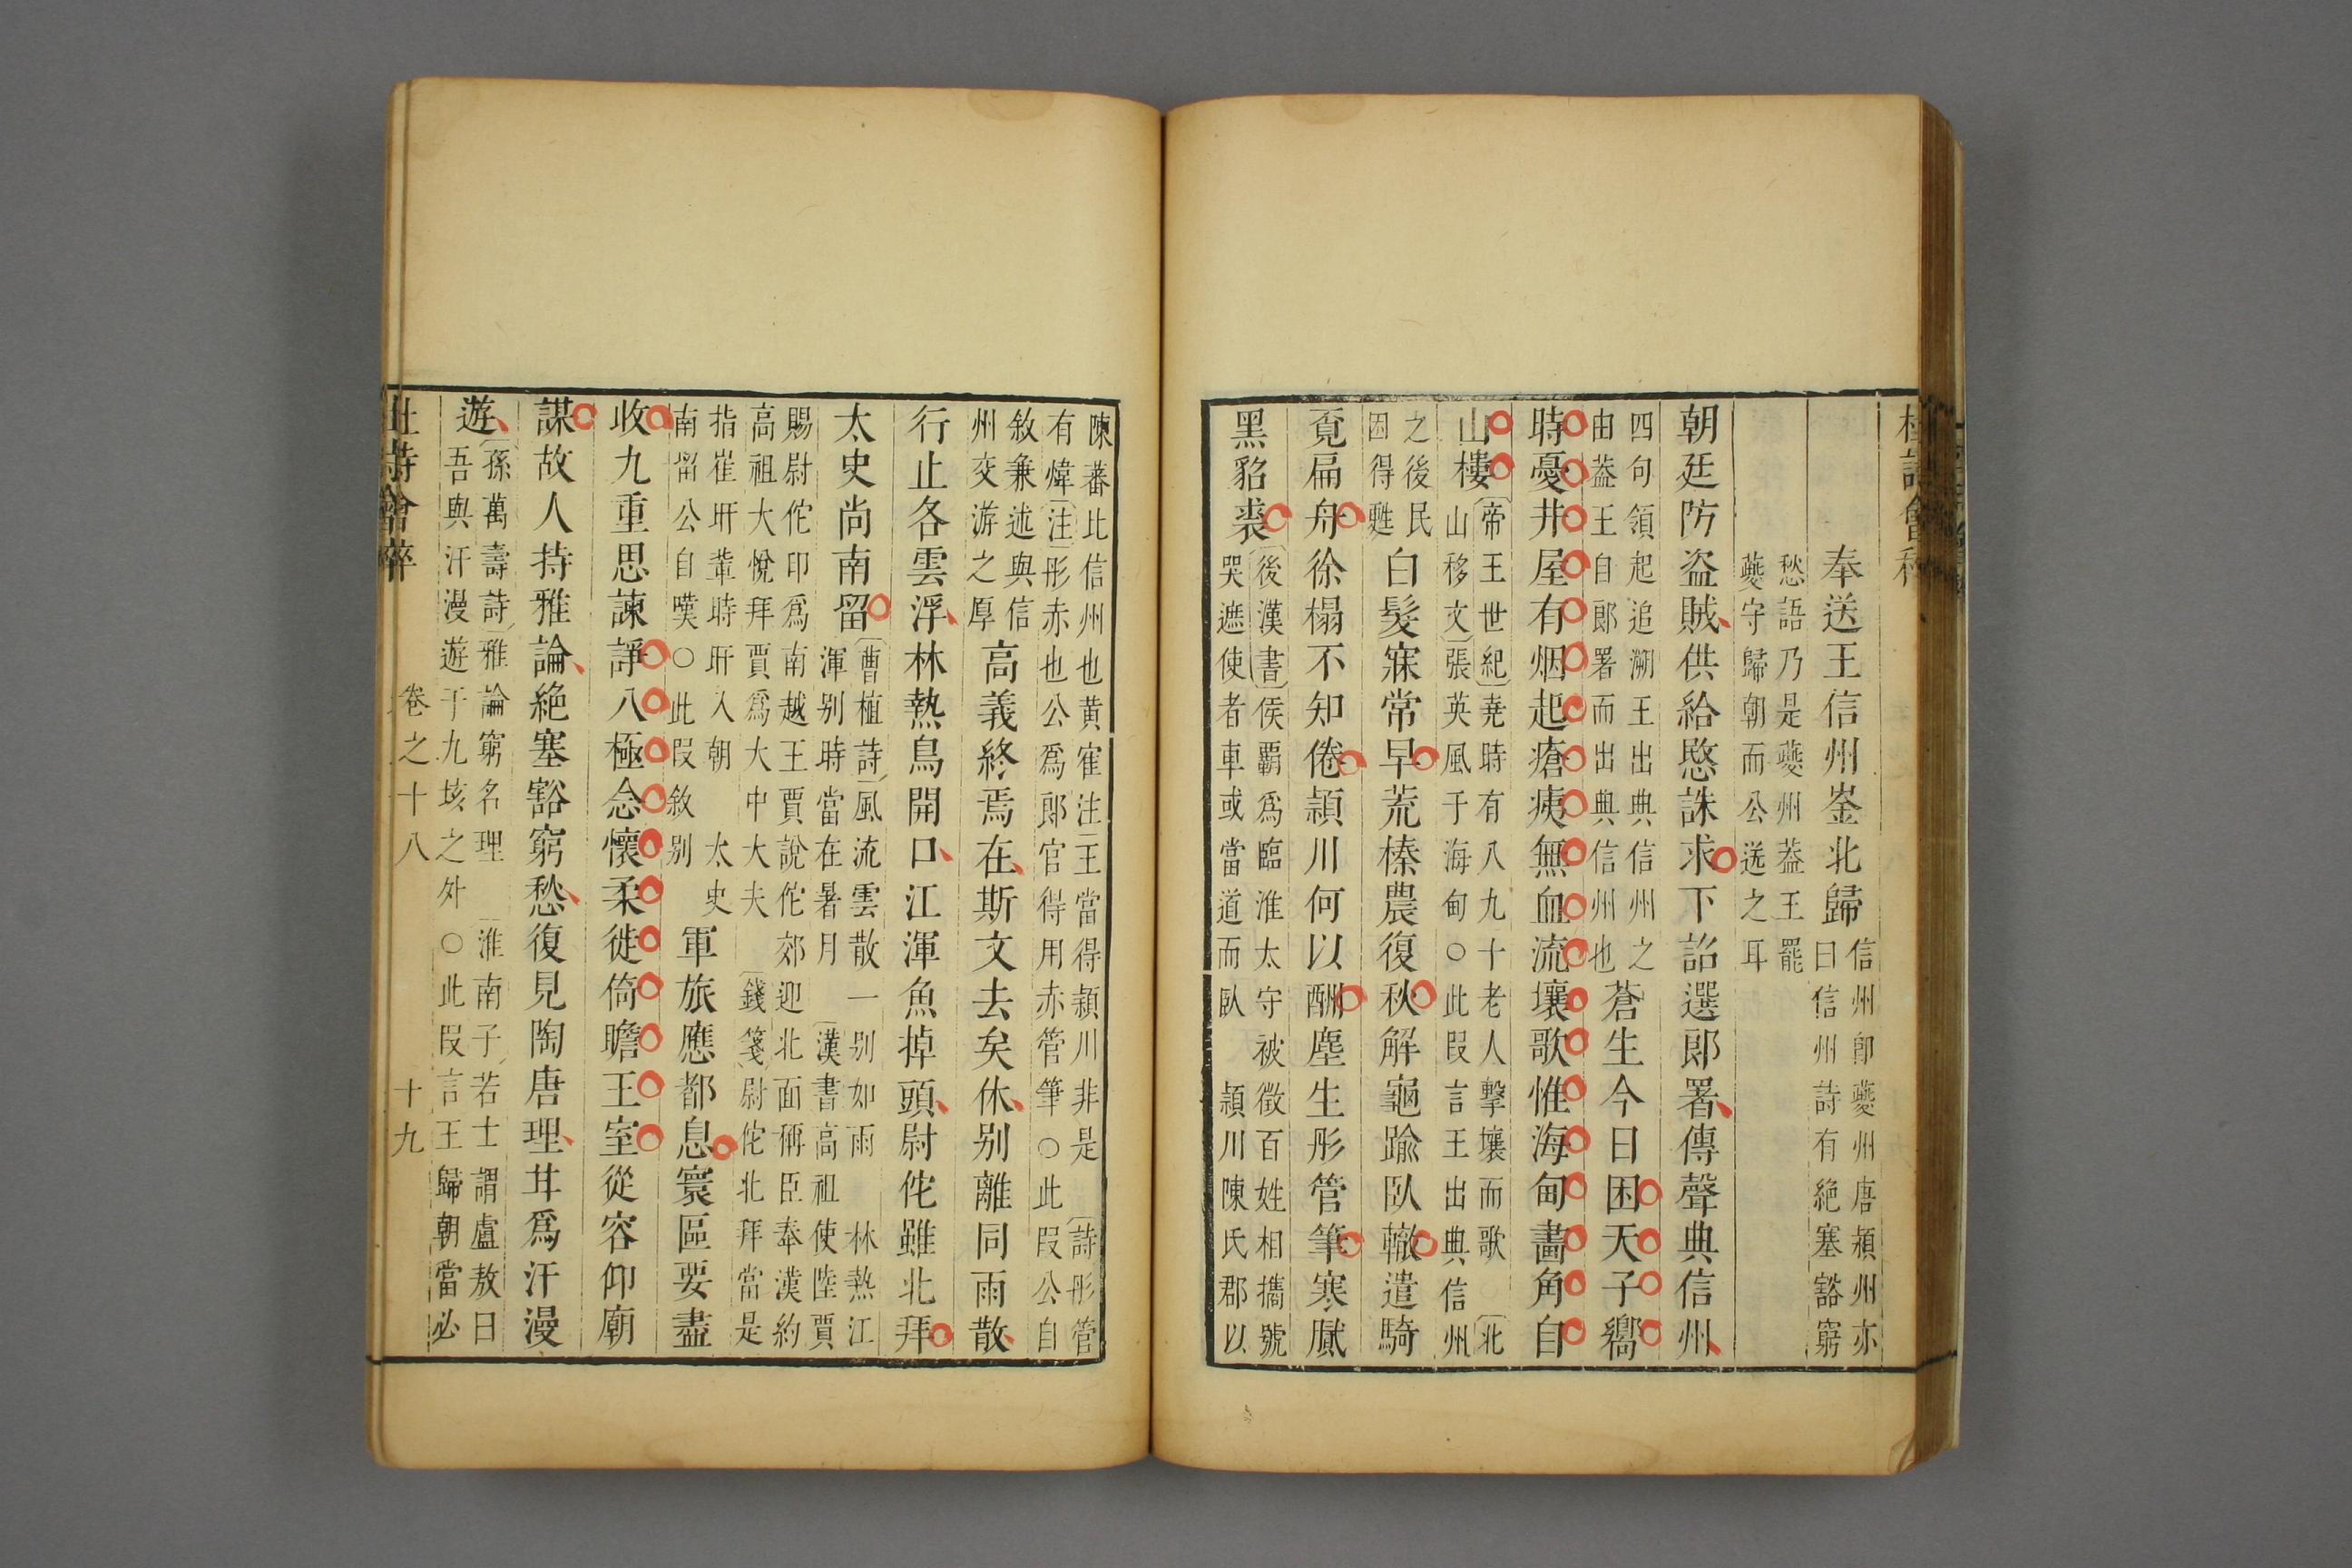 奉送王信州崟北歸
信州卽夔州唐潁州亦
曰信州詩有絕塞豁窮
愁語乃是夔州葢王罷
夔守歸朝而公送之耳
朝廷防盜賊供給愍誅求下詔選郎署傳聲典信州
四句領起追溯王出典信州之
由葢王自郎署而出典信州也
蒼生今日困天子嚮
時憂井屋有烟起瘡痍無血流壤歌惟海甸畵角自
山樓
帝王世紀堯時有八九十老人擊壤而歌 北
山移文張英風于海甸○此叚言王出典信州
之後民
困得甦
白髮寐常早荒榛農復秋解龜踰臥轍遣騎
覔扁舟徐榻不知倦潁川何以酬塵生彤管筆寒膩
黑貂裘
後漢書侯霸爲臨淮太守被徵百姓相攜號
哭遮使者車或當道而臥 潁川陳氏郡以
陳蕃比信州也黃寉注王當得潁川非是 詩彤管
有煒注彤赤也公爲郎官得用赤管筆○此叚公自
敘兼述與信
州交游之厚
高義終焉在斯文去矣休别離同雨散
行止各雲浮林熱鳥開口江渾魚掉頭尉佗雖北拜
太史尚南留
曹植詩風流雲散一别如雨 林熱江
渾别時當在暑月 漢書高祖使陸賈
賜尉佗印爲南越王賈說佗郊迎北面稱臣奉漢約
高祖大悅拜賈爲大中大夫 錢箋尉佗北拜當是
指崔旰輩時旰入朝 太史
南留公自嘆○此叚敘别
軍旅應都息寰區要盡
收九重思諫諍八極念懷柔徙倚瞻王室從容仰廟
謀故人持雅論絕塞豁窮愁復見陶唐理甘爲汗漫
遊
孫萬壽詩雅論窮名理 淮南子若士謂盧敖曰
吾與汗漫遊于九垓之外○此叚言王歸朝當必
杜詩會稡
卷之十八
十九